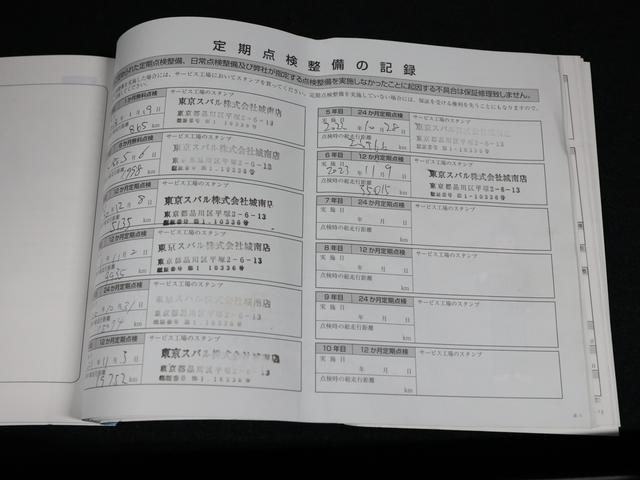 定期点検整備の記録
定期点検整備、日常点検整備及び弊社が指定する点検整備を実施しなかったことに起因する不具合は保証修理致しません。
サービス工場においてスタンプを貰ってください。定期点検整備を実施していない場合には、保証を受ける権利を失うことにもなりますので、
サービス工場のスタンプ
東京スバル株式会社城南店
東京都品川区平塚2-6-13
認証番号 第1-10336号
865
km
サービス工場のスタンプ
東京スバル株式会社城南店
東京都品川区平塚2-6-13
認証番号 第1-10336号
km
12か月定期点検
サービス工場のスタンプ
東京スバル株式会社城南店
東京都品川区平塚2-6-13
認証番号 第1-10336号
5135
km
12か月定期点検
サービス工場のスタンプ
東京スバル株式会社城南店
東京都品川区平塚2-6-13
認証番号 第1-10336号
km
24か月定期点検
サービス工場のスタンプ
東京スバル株式会社城南店
東京都品川区平塚2-6-13
認証番号 第1-10336号
km
12か月定期点検
サービス工場のスタンプ
東京スバル株式会社城南店
東京都品川区平塚2-6-13
認証番号 第1-10336号
19752
km
5年目 24か月定期点検
サービス工場のスタンプ
実施日
点検時の総走行距離
km
6年目 12か月定期点検
サービス工場のスタンプ
実施日 2023年11月9日
点検時の総走行距離
35015 km
東京スバル株式会社城南店
東京都品川区平塚2-6-13
認証番号 第1-10336号
7年目 24か月定期点検
サービス工場のスタンプ
実施日 年 月 日
点検時の総走行距離
km
8年目 12か月定期点検
サービス工場のスタンプ
実施日 年 月 日
点検時の総走行距離
km
9年目 24か月定期点検
サービス工場のスタンプ
実施日 年 月 日
点検時の総走行距離
km
10年目 12か月定期点検
サービス工場のスタンプ
実施日 年 月 日
点検時の総走行距離
km